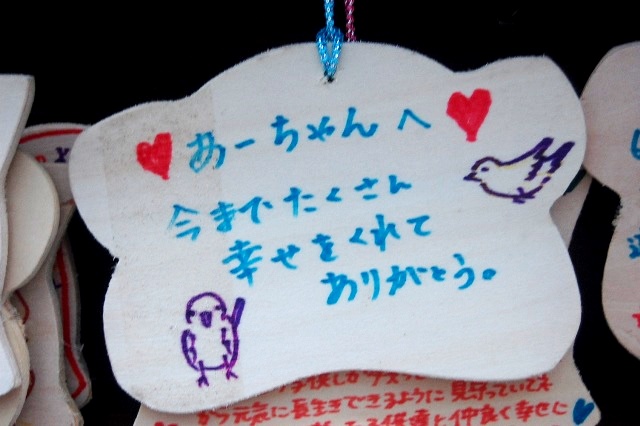 あーちゃんへ
今までたくさん
幸せをくれて
ありがとう。
から元気に長生きできるように見守っていてネ
仲良く幸せに